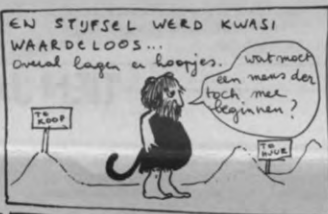 EN STIJFSEL WERD KWASI
WAARDELOOS...
overal lagen er hoopjes.
wat moet
een mens der
toch mee
beginnen?
TE
KOOP
TE
HUUR